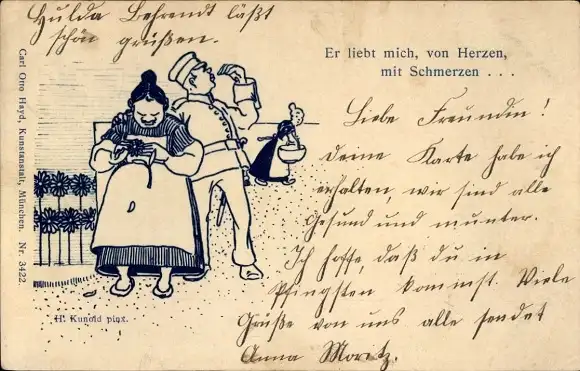 Hulda Behrendt läßt
schön grüßen.
Er liebt mich, von Herzen,
mit Schmerzen . . .
Liebe Freundin!
deine Karte habe ich
erhalten, wir sind alle
Gesund und munter.
Ich hoffe, daß du in
Pfingsten kommst. Viele
Grüße von uns alle sendet
Anna Moritz.
Carl Otto Hayd, Kunstanstalt, München. Nr. 3422
H. Kunold pinx.